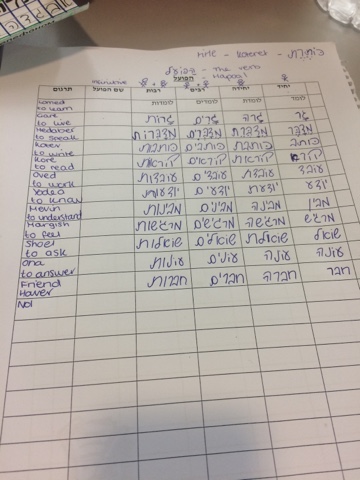 title - koteret - כותרת
הפועל - the verb
הפועל - Hapoal
infinitive
תרגום שם הפועל רבות רבים יחידה יחיד
Lomed לומדות לומדים לומדת לומד
to learn
Gare גרות גרים גרה גר
to live
Medaber מדברות מדברים מדברת מדבר
to speak
Kotev כותבות כותבים כותבת כותב
to write
Kore קוראות קוראים קוראת קורא
to read
Oved עובדות עובדים עובדת עובד
to work
Yodea יודעות יודעים יודעת יודע
to know
Mevin מבינות מבינים מבינה מבין
to understand
Margish מרגשות מרגשים מרגשה מרגש
to feel
Shoel שואלות שואלים שואלת שואל
to ask
Ona עונות עונים עונה עונה
to answer
Friend חברות חברים חברה חבר
Haver
No!